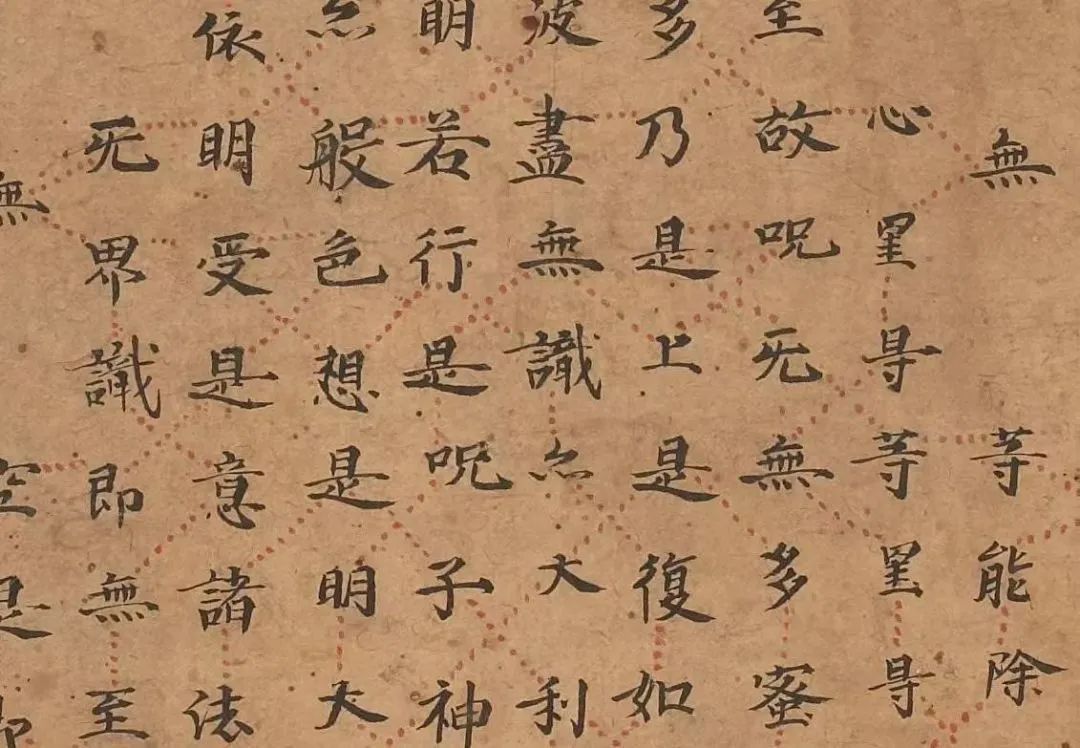 無等能除
心罣㝵等罣㝵
至故呪无無多蜜
多乃是上是復如
波盡無識亦大利
明若行是呪子神
亦般色想是明大
依明受是意諸法
无界識即無至
無空是